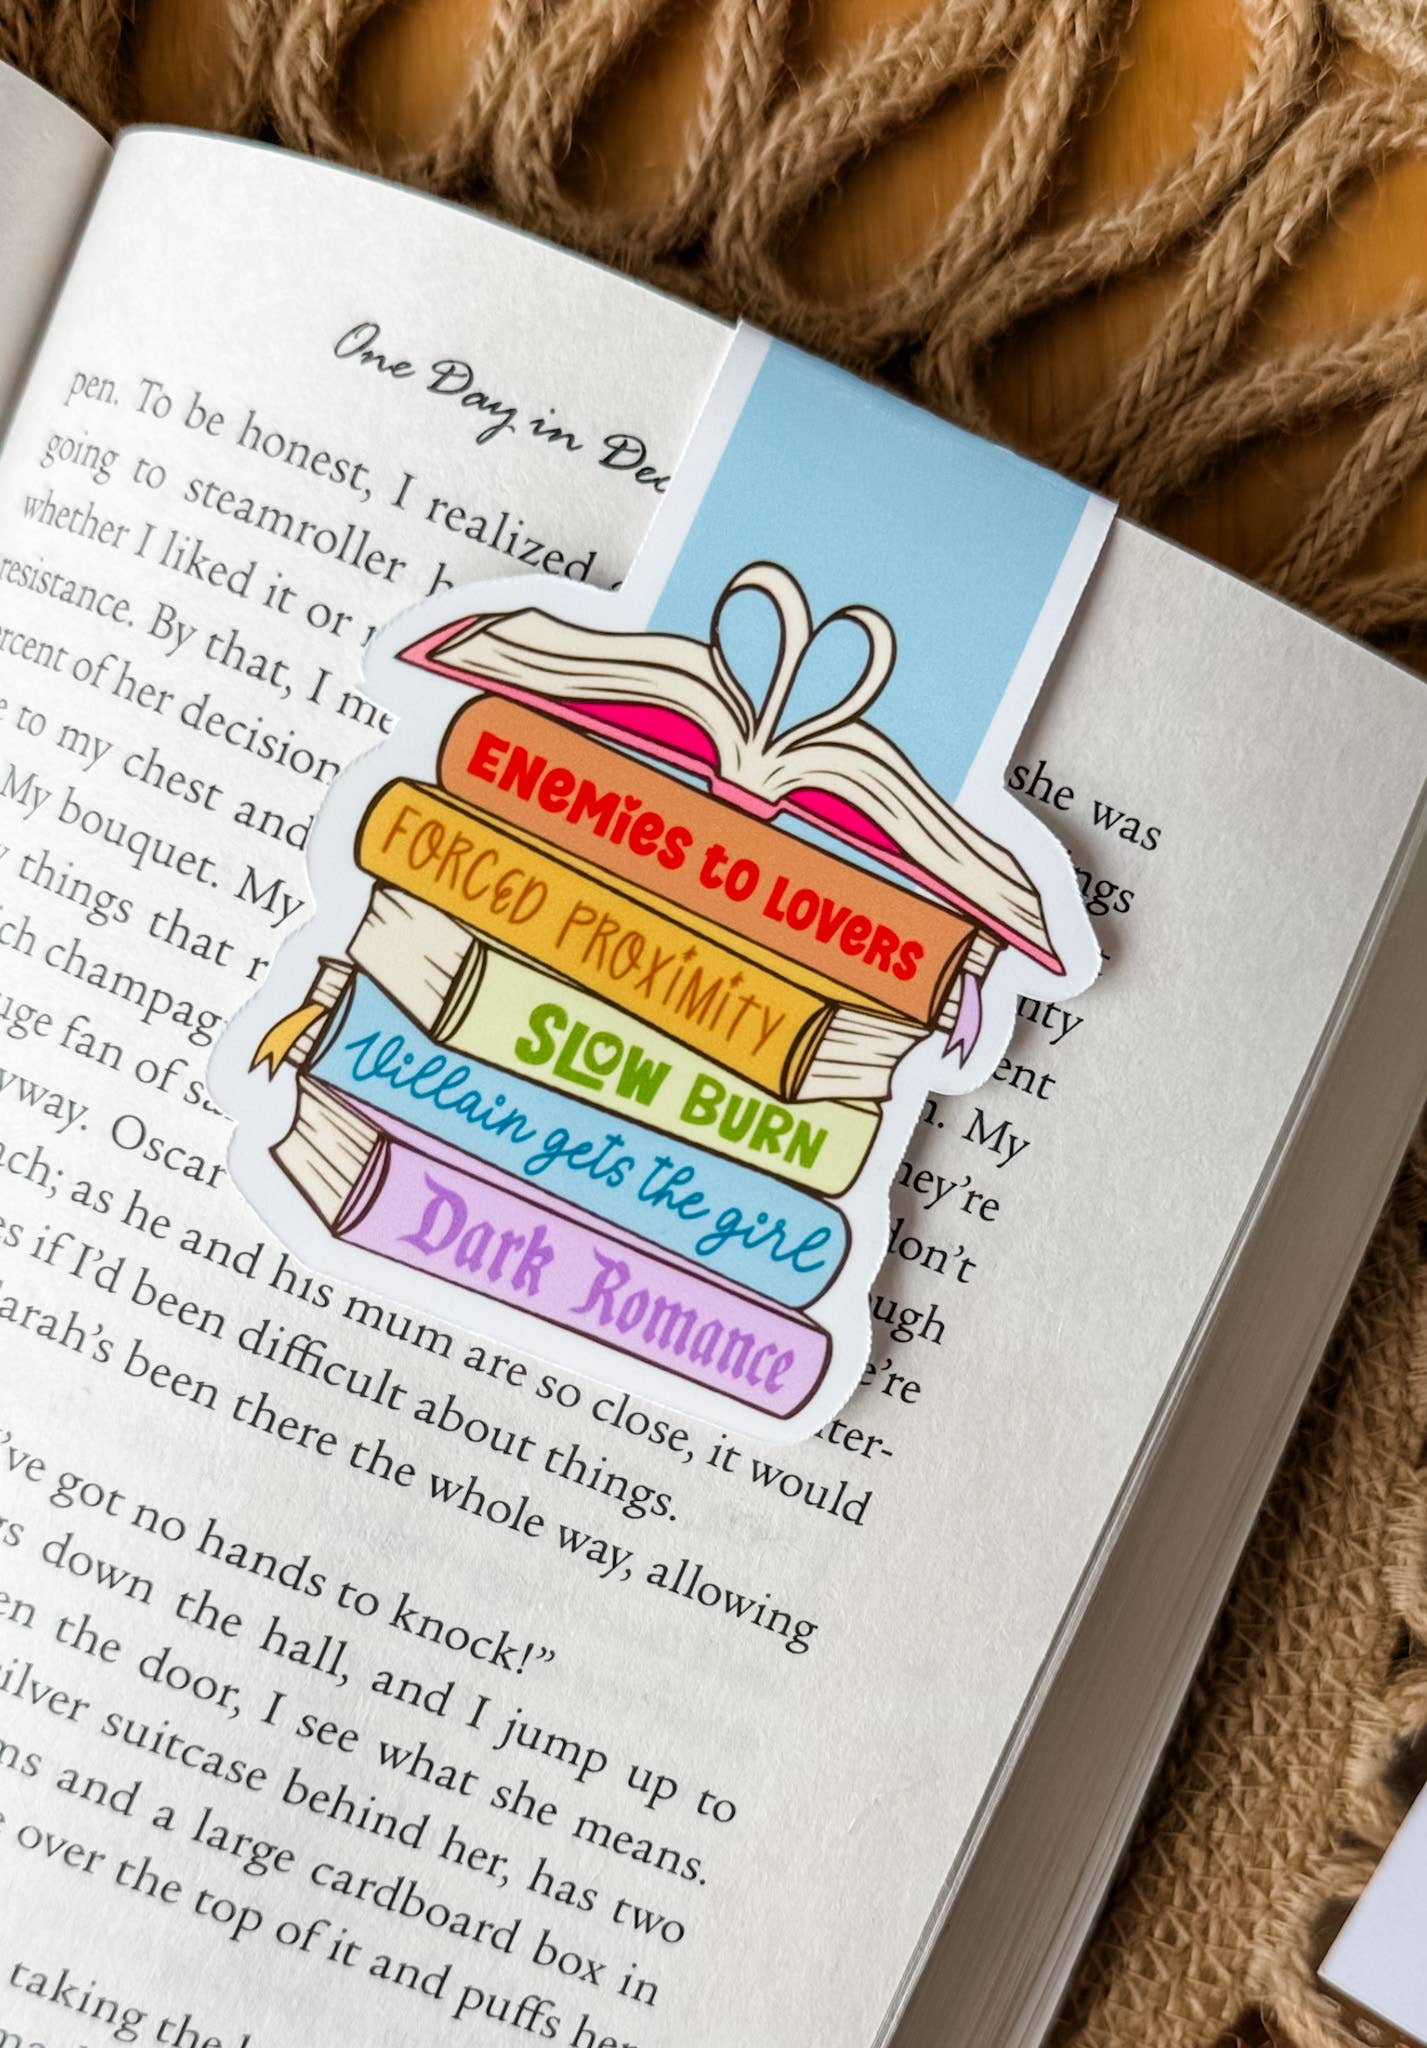 One Day in Dec
pen. To be honest, I realized
going to steamroller
whether I liked it or
resistance. By that, I me
of her decision
to my chest and
My bouquet. My
things that
champag
fan of
Oscar
as he and his mum are so close, it would
if I'd been difficult about things.
been there the whole way, allowing
got no hands to knock!”
down the hall, and I jump up to
the door, I see what she means.
suitcase behind her, has two
and a large cardboard box in
over the top of it and puffs her
taking the
she was
My
don't
ENEMIES TO LOVERS
FORCED PROXIMITY
SLOW BURN
Villain gets the girl
Dark Romance